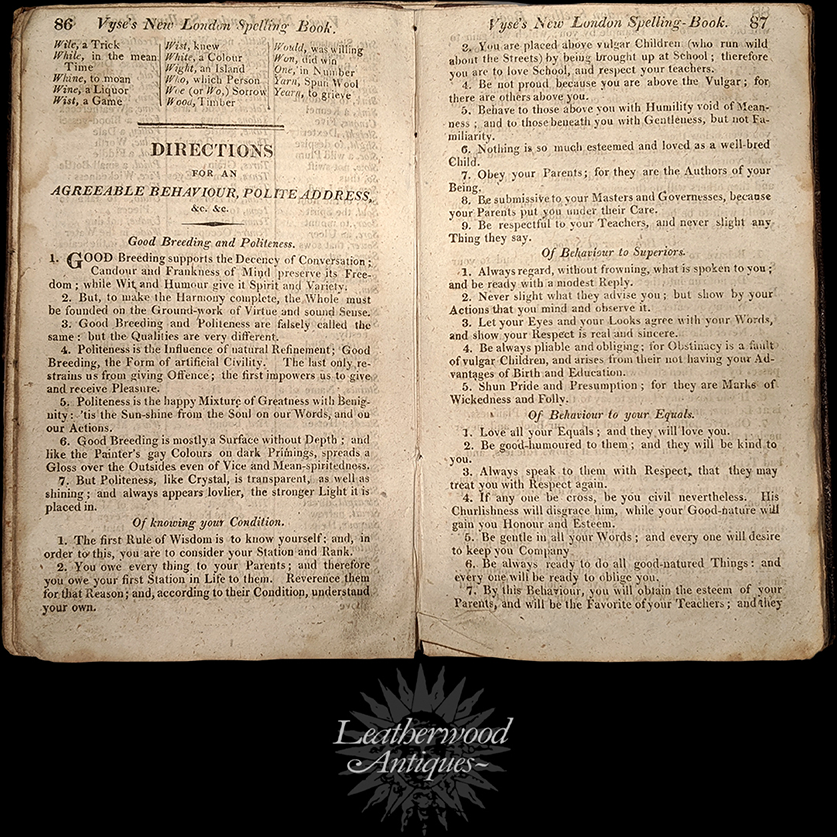 86 Vyse's New London Spelling Book.
Wile, a Trick
While, in the mean
Time
Whine, to moan
Wine, a Liquor
Wist, a Game
Wist, knew
White, a Colour
Wight, an Island
Who, which Person
Woe (or Wo,) Sorrow
Wood, Timber
Would, was willing
Won, did win
One, in Number
Yarn, Spun Wool
Yearn, to grieve
DIRECTIONS
FOR AN
AGREEABLE BEHAVIOUR, POLITE ADDRESS,
&c. &c.
Good Breeding and Politeness.
1. GOOD Breeding supports the Decency of Conversation;
Candour and Frankness of Mind preserve its Free-
dom; while Wit and Humour give it Spirit and Variety.
2. But, to make the Harmony complete, the Whole must
be founded on the Ground-work of Virtue and sound Sense.
3. Good Breeding and Politeness are falsely called the
same: but the Qualities are very different.
4. Politeness is the Influence of natural Refinement; Good
Breeding, the Form of artificial Civility. The last only re-
strains us from giving Offence; the first impowers us to give
and receive Pleasure.
5. Politeness is the happy Mixture of Greatness with Benig-
nity: 'tis the Sun-shine from the Soul on our Words, and on
our Actions.
6. Good Breeding is mostly a Surface without Depth; and
like the Painter's gay Colours on dark Primings, spreads a
Gloss over the Outsides even of Vice and Mean-spiritedness.
7. But Politeness, like Crystal, is transparent, as well as
shining; and always appears lovlier, the stronger Light it is
placed in.
Of knowing your Condition.
1. The first Rule of Wisdom is to know yourself: and, in
order to this, you are to consider your Station and Rank.
2. You owe every thing to your Parents; and therefore
you owe your first Station in Life to them. Reverence them
for that Reason; and, according to their Condition, understand
your own.
Vyse's New London Spelling-Book. 87
3. You are placed above vulgar Children (who run wild
about the Streets) by being brought up at School; therefore
you are to love School, and respect your teachers.
4. Be not proud because you are above the Vulgar; for
there are others above you.
5. Behave to those above you with Humility void of Mean-
ness; and to those beneath you with Gentleness, but not Fa-
miliarity.
6. Nothing is so much esteemed and loved as a well-bred
Child.
7. Obey your Parents; for they are the Authors of your
Being.
8. Be submissive to your Masters and Governesses, because
your Parents put you under their Care.
9. Be respectful to your Teachers, and never slight any
Thing they say.
Of Behaviour to Superiors.
1. Always regard, without frowning, what is spoken to you;
and be ready with a modest Reply.
2. Never slight what they advise you; but show by your
Actions that you mind and observe it.
3. Let your Eyes and your Looks agree with your Words,
and show your Respect is real and sincere.
4. Be always pliable and obliging; for Obstinacy is a fault
of vulgar Children, and arises from their not having your Ad-
vantages of Birth and Education.
5. Shun Pride and Presumption; for they are Marks of
Wickedness and Folly.
Of Behaviour to your Equals.
1. Love all your Equals; and they will love you.
2. Be good-humoured to them; and they will be kind to
you.
3. Always speak to them with Respect, that they may
treat you with Respect again.
4. If any one be cross, be you civil nevertheless. His
Churlishness will disgrace him, while your Good-nature will
gain you Honour and Esteem.
5. Be gentle in all your Words; and every one will desire
to keep you Company
6. Be always ready to do all good-natured Things: and
every one will be ready to oblige you.
7. By this Behaviour, you will obtain the esteem of your
Parents, and will be the Favorite of your Teachers; and they
Leatherwood
Antiques~